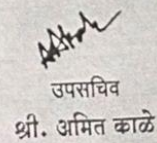 उपसचिव
श्री. अमित काळे